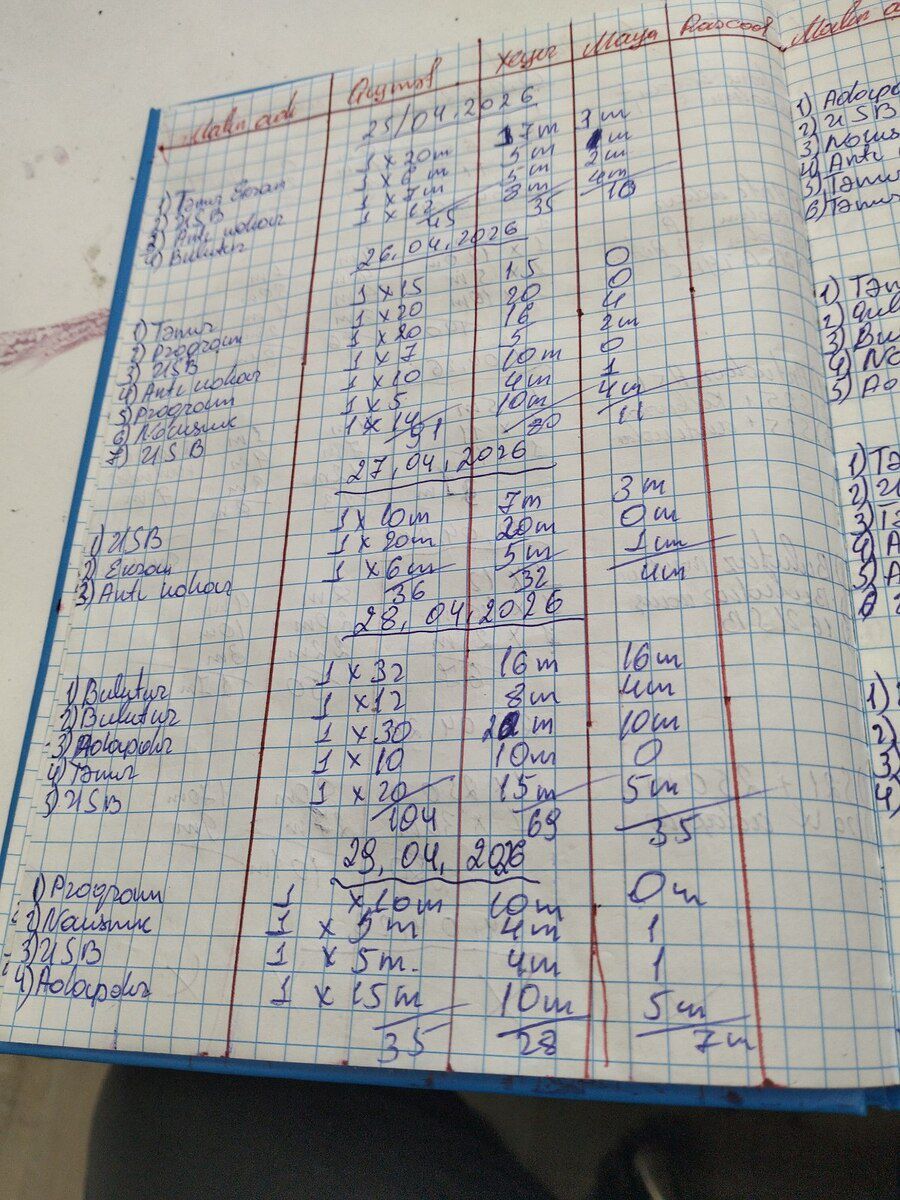 Malın adı Qiymət Xeyir Maya Rasxod
25/04.2026
1) Təmir Ekran 1 x 20m 17m 3m
2) USB 1 x 6m 5m 1m
3) Anti nohar 1 x 7m 5m 2m
4) Bulutur 1 x 12 8m 4m
45 35 10
26.04.2026
1) Təmir 1 x 15 15 0
2) Program 1 x 20 20 0
3) USB 1 x 20 16 4
4) Anti nohar 1 x 7 5 2m
5) Program 1 x 10 10m 0
6) Nauşnik 1 x 5 4m 1
7) USB 1 x 14 10m 4m
91 80 11
27.04.2026
1) USB 1 x 10m 7m 3m
2) Ekran 1 x 20m 20m 0m
3) Anti nohar 1 x 6m 5m 1m
36 32 4m
28.04.2026
1) Bulutur 1 x 32 16m 16m
2) Bulutur 1 x 12 8m 4m
3) Adapdır 1 x 30 20m 10m
4) Təmir 1 x 10 10m 0
5) USB 1 x 20 15m 5m
104 69 35
29.04.2026
1) Program 1 x 10m 10m 0m
2) Nauşnik 1 x 5m 4m 1
3) USB 1 x 5m. 4m 1
4) Adapdır 1 x 15m 10m 5m
35 28 7m
Malın
1)
2) USB
3)
4) Anti
5) Təmir
6) Təmir
1)
2)
3)
4)
5)
1)
2)
3)
4)
5)
1)
2)
3)
4)